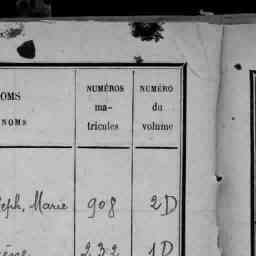 OMS
NOMS
NUMÉROS
ma-
tricules
NUMÉRO
du
volume
seph, Marie 908 2D
232 1D